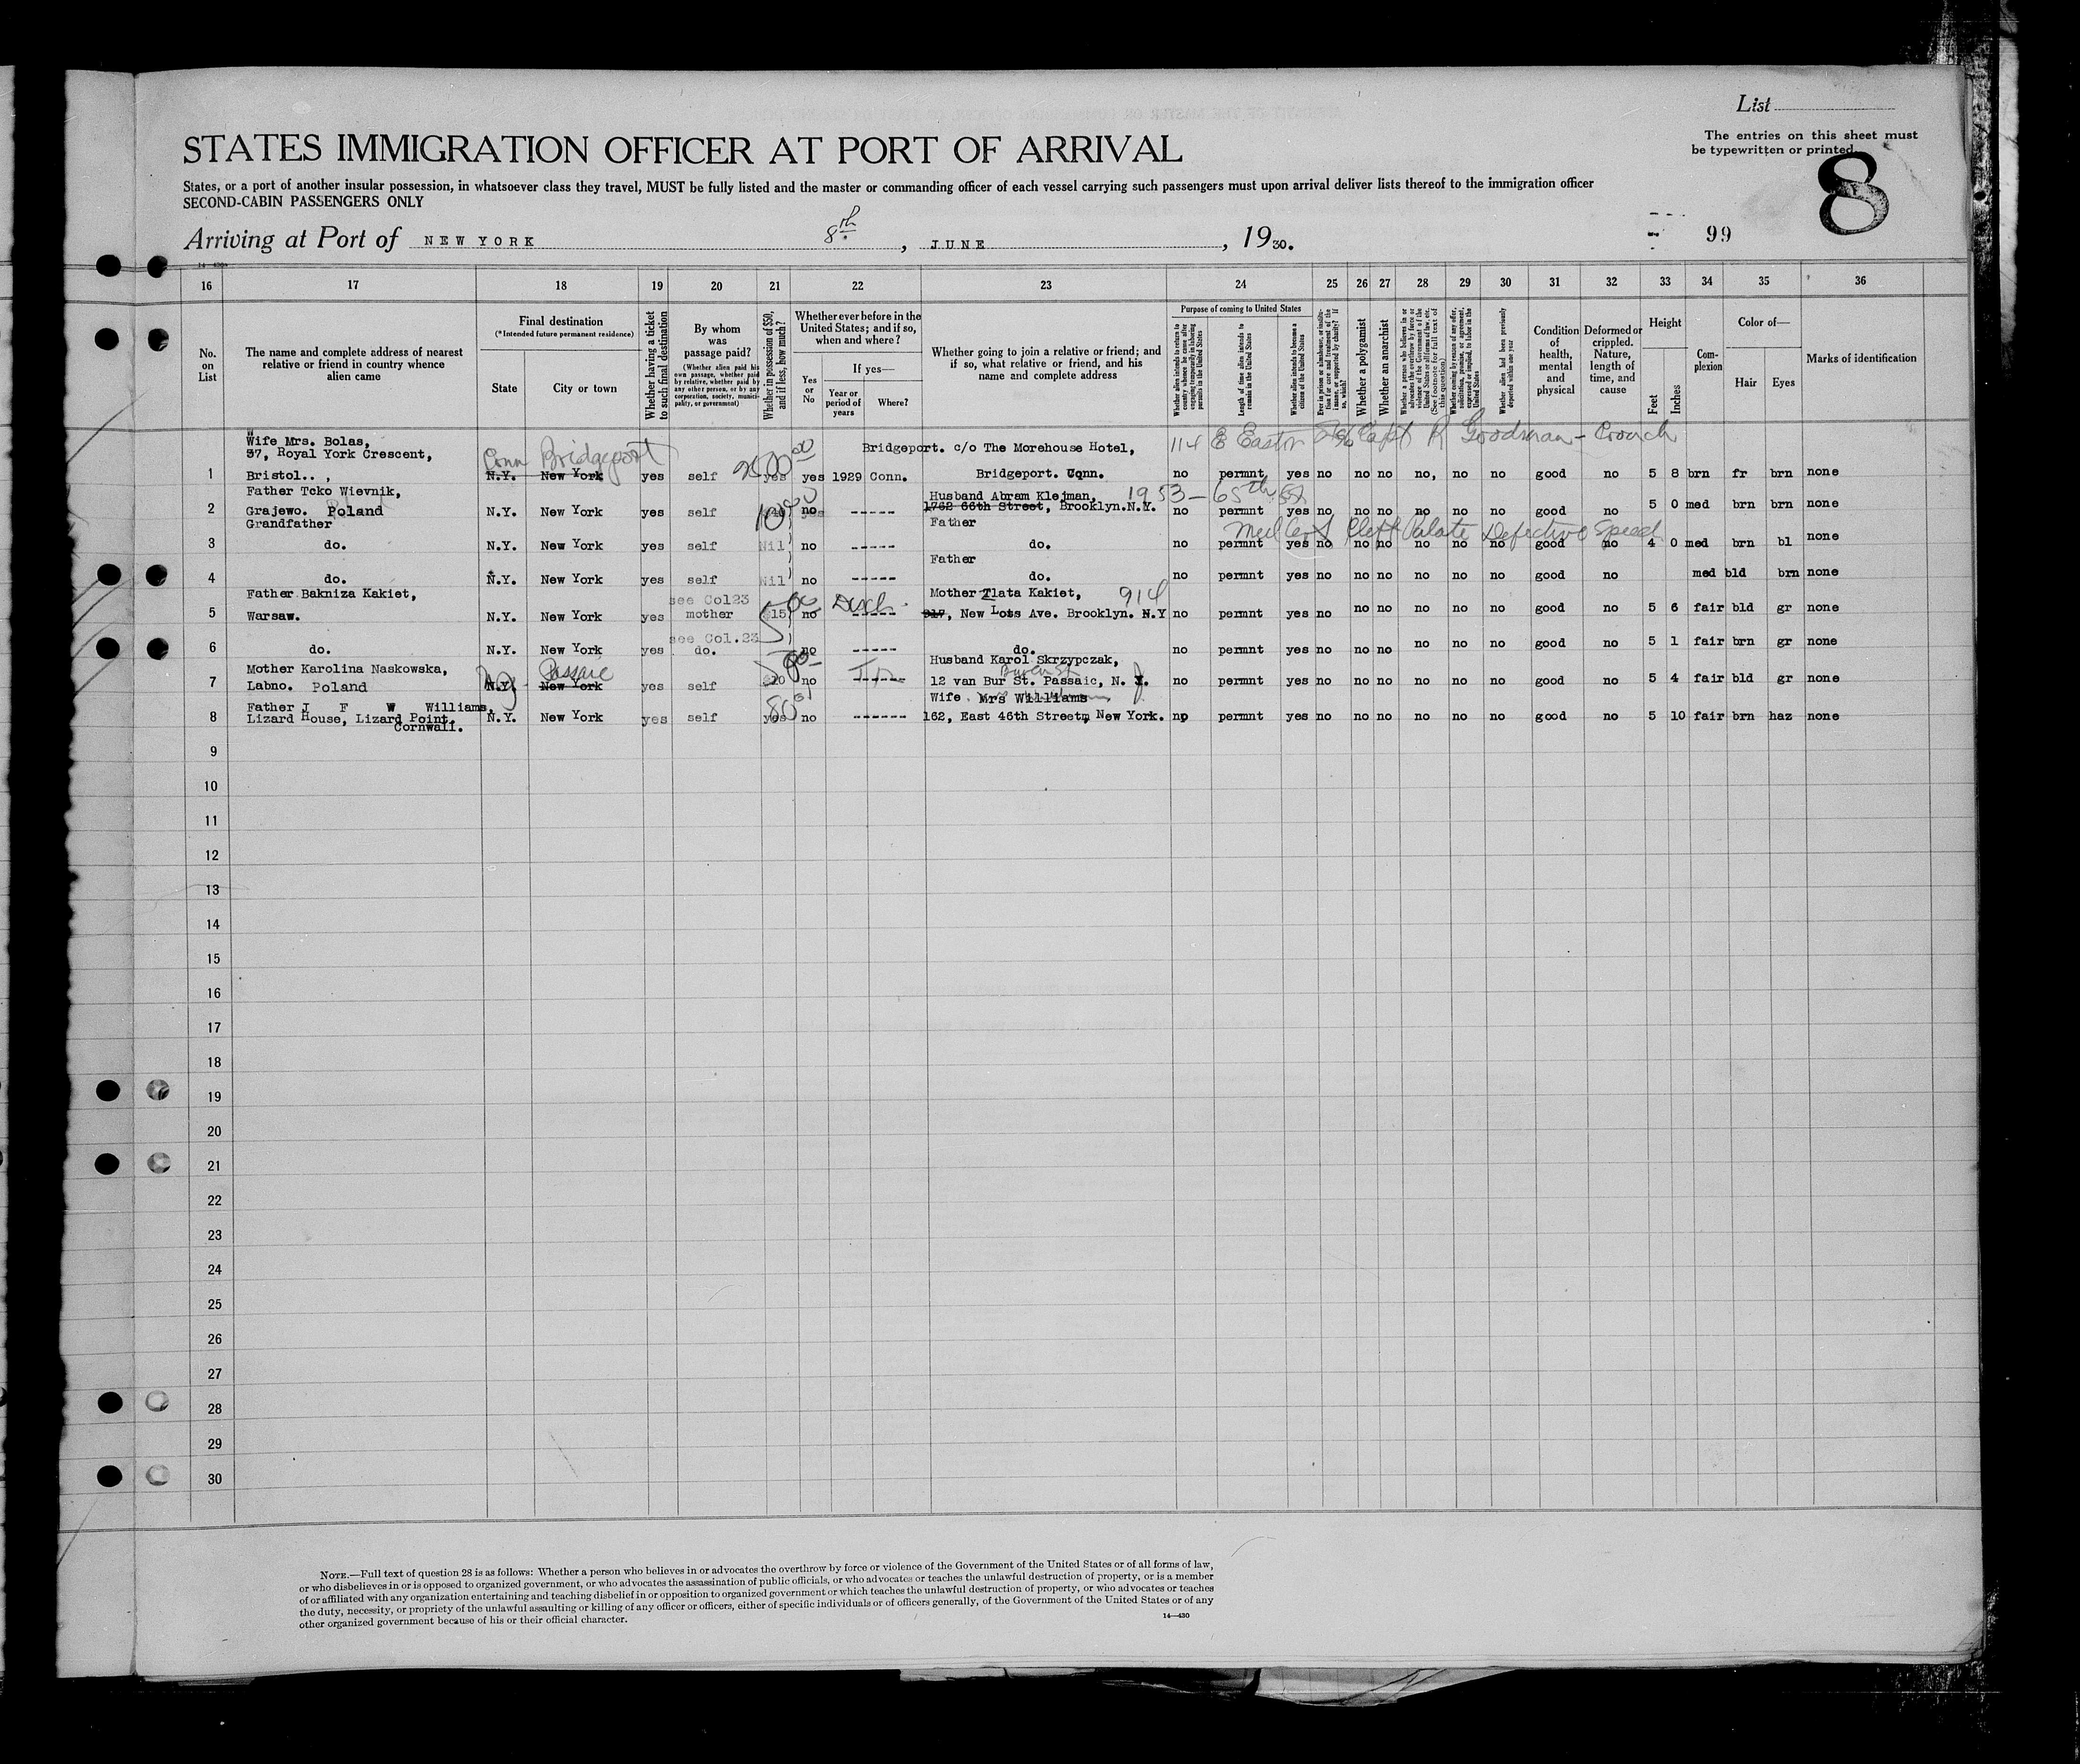 List
The entries on this sheet must
be typewritten or printed.
8
STATES IMMIGRATION OFFICER AT PORT OF ARRIVAL
States, or a port of another insular possession, in whatsoever class they travel, MUST be fully listed and the master or commanding officer of each vessel carrying such passengers must upon arrival deliver lists thereof to the immigration officer
SECOND-CABIN PASSENGERS ONLY
Arriving at Port of NEW YORK 8th, JUNE, 1930.
99
16 17 18 19 20 21 22 23 24 25 26 27 28 29 30 31 32 33 34 35 36
No. on List
The name and complete address of nearest relative or friend in country whence alien came
Final destination
(*Intended future permanent residence)
State
City or town
Whether having a ticket to such final destination
By whom was passage paid?
(Whether alien paid his own passage, whether paid by relative, whether paid by any other person, or by any corporation, society, municipality, or government)
Whether in possession of $50, and if less, how much?
Whether ever before in the United States; and if so, when and where?
Yes or No
If yes—
Year or period of years
Where?
Whether going to join a relative or friend; and if so, what relative or friend, and his name and complete address
Purpose of coming to United States
Whether alien intends to return to country whence he came after engaging temporarily in laboring pursuits in the United States
Length of time alien intends to remain in the United States
Whether alien intends to become a citizen of the United States
Whether a polygamist
Whether an anarchist
Whether alien had been previously deported within one year
Condition of health, mental and physical
Deformed or crippled. Nature, length of time, and cause
Height
Feet
Inches
Complexion
Color of—
Hair
Eyes
Marks of identification
Wife Mrs. Bolas, Bridgeport. c/o The Morehouse Hotel, 114 E Capt R Goodman -
37, Royal York Crescent, Conn Bridgeport
1 Bristol.. , N.Y. New York yes self yes yes 1929 Conn. Bridgeport. Conn. no permnt yes no no no no, no no good no 5 8 brn fr brn none
Father Tcko Wievnik, Husband Abram Klejman, 1953 - 65th St
2 Grajewo. Poland N.Y. New York yes self no ----- 1762 66th Street, Brooklyn.N.Y. no permnt yes no no no no no no good no 5 0 med brn brn none
Grandfather Father Med Cert Cleft Palate Defective Speech
3 do. N.Y. New York yes self Nil no ----- do. no permnt yes no no no no no no good no 4 0 med brn bl none
Father
4 do. N.Y. New York yes self Nil no ----- do. no permnt yes no no no no no no good no med bld brn none
Father Bakniza Kakiet, see Col23 Mother Zlata Kakiet, 914
5 Warsaw. N.Y. New York yes mother 15 no ----- 917, New Lots Ave. Brooklyn. N.Y no permnt yes no no no no no no good no 5 6 fair bld gr none
see Col.23
6 do. N.Y. New York yes do. no ----- do. no permnt yes no no no no no no good no 5 1 fair brn gr none
Mother Karolina Naskowska, Passaic Husband Karol Skrzypczak,
7 Labno. Poland N.Y. New York yes self 20 no ------ 12 van Bur St. Passaic, N. J. no permnt yes no no no no no no good no 5 4 fair bld gr none
Father J F W Williams, Wife Mrs Williams
8 Lizard House, Lizard Point, N.Y. New York yes self yes no ------ 162, East 46th Street, New York. no permnt yes no no no no no no good no 5 10 fair brn haz none
Cornwall.
9
10
11
12
13
14
15
16
17
18
19
20
21
22
23
24
25
26
27
28
29
30
NOTE.—Full text of question 28 is as follows: Whether a person who believes in or advocates the overthrow by force or violence of the Government of the United States or of all forms of law,
or who disbelieves in or is opposed to organized government, or who advocates the assassination of public officials, or who advocates or teaches the unlawful destruction of property, or is a member
of or affiliated with any organization entertaining and teaching disbelief in or opposition to organized government or which teaches the unlawful destruction of property, or who advocates or teaches
the duty, necessity, or propriety of the unlawful assaulting or killing of any officer or officers, either of specific individuals or of officers generally, of the Government of the United States or of any
other organized government because of his or their official character.
14—430